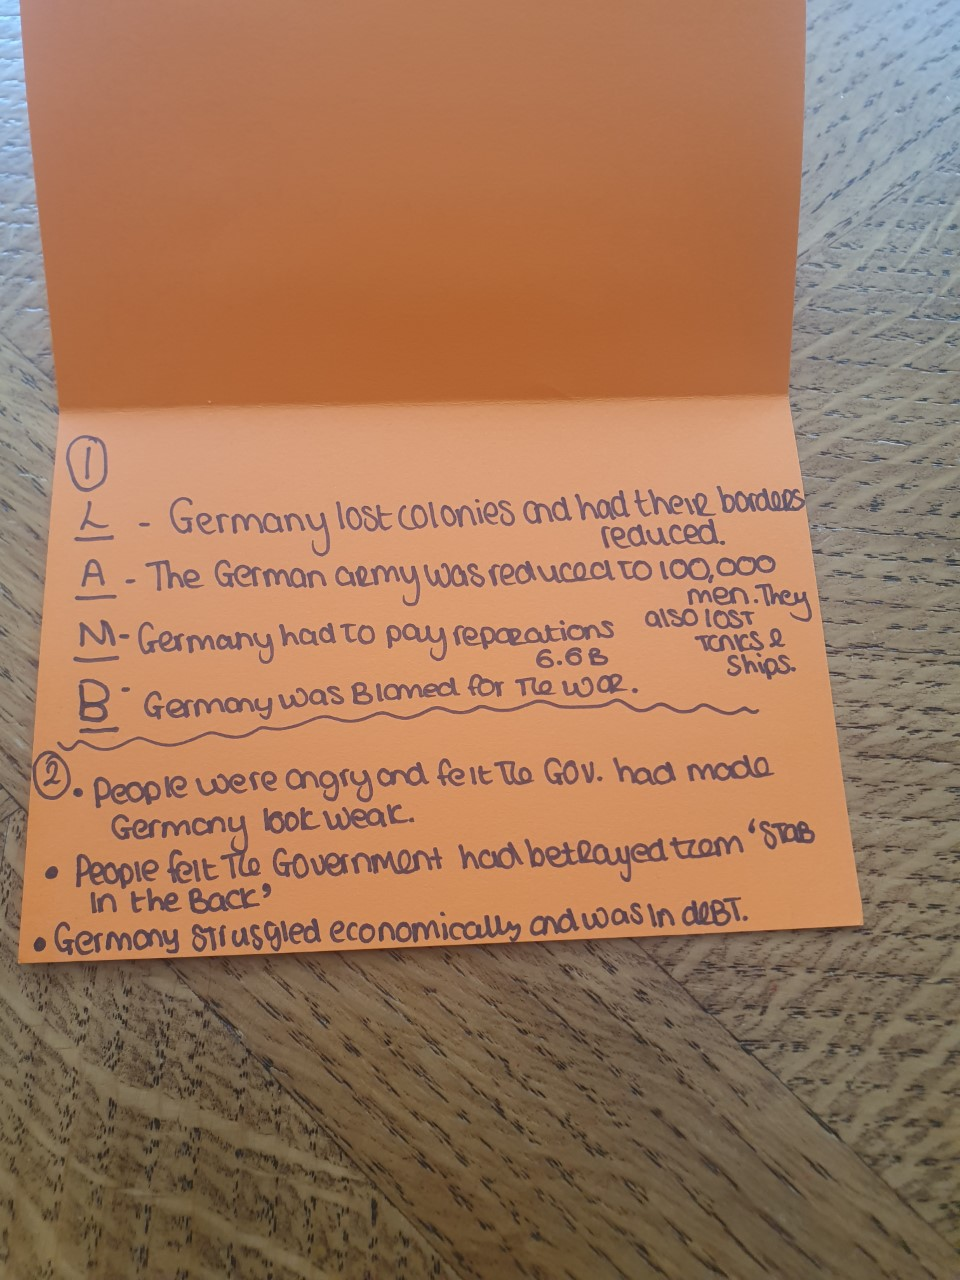 1
L - Germany lost colonies and had their borders
reduced.
A - The German army was reduced to 100,000
men. They
also lost
tanks &
ships.
M - Germany had to pay reparations
6.6B
B - Germany was Blamed for the war.
2
• People were angry and felt the Gov. had made
Germany look weak.
• People felt the Government had betrayed them 'Stab
in the Back'
• Germany strusgled economically and was in debt.